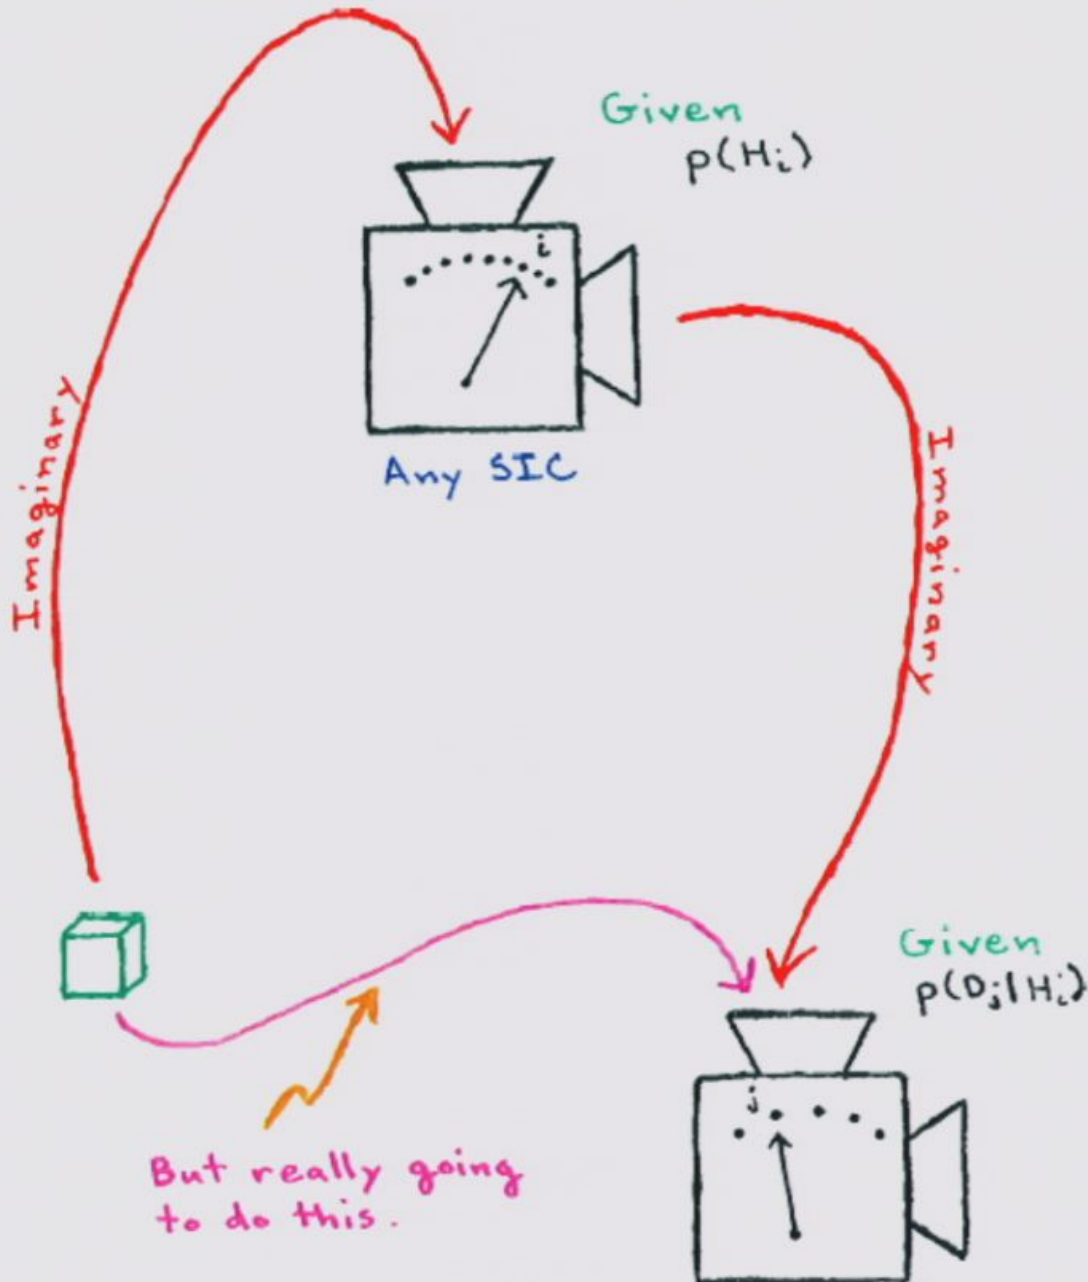 Given
p(Hi)
i
Any SIC
Imaginary
Imaginary
Given
p(Dj|Hi)
j
But really going
to do this.